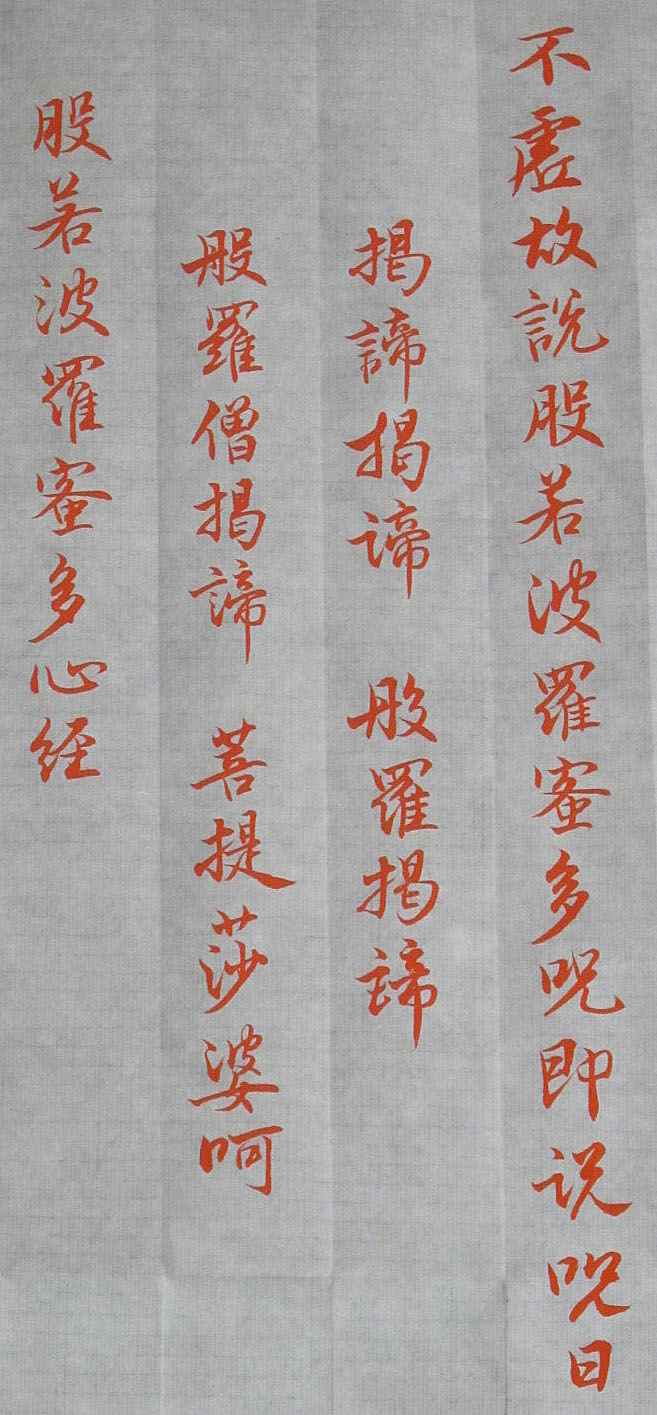 不虛故說股若波羅蜜多呪即说呪曰
揭諦揭谛 般羅揭谛
般羅僧揭諦 菩提莎婆呵
股若波羅蜜多心経